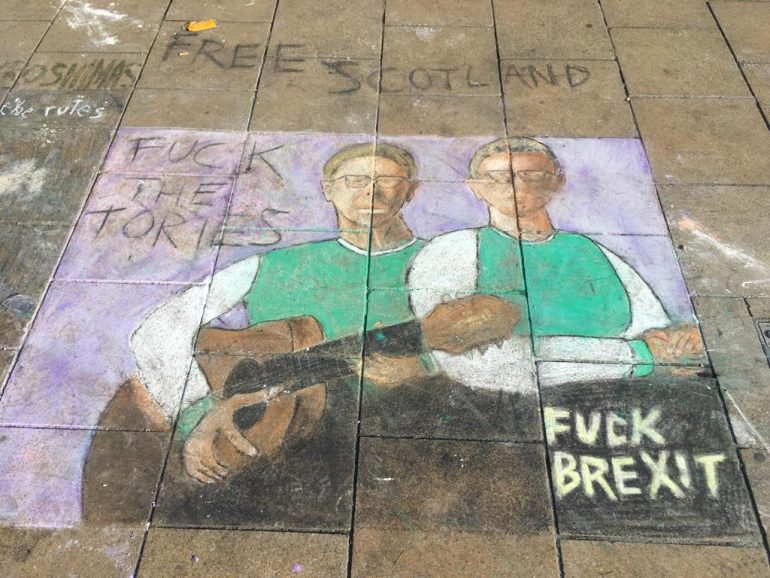 FREE SCOTLAND
the rules
FUCK
THE
TORIES
FUCK
BREXIT